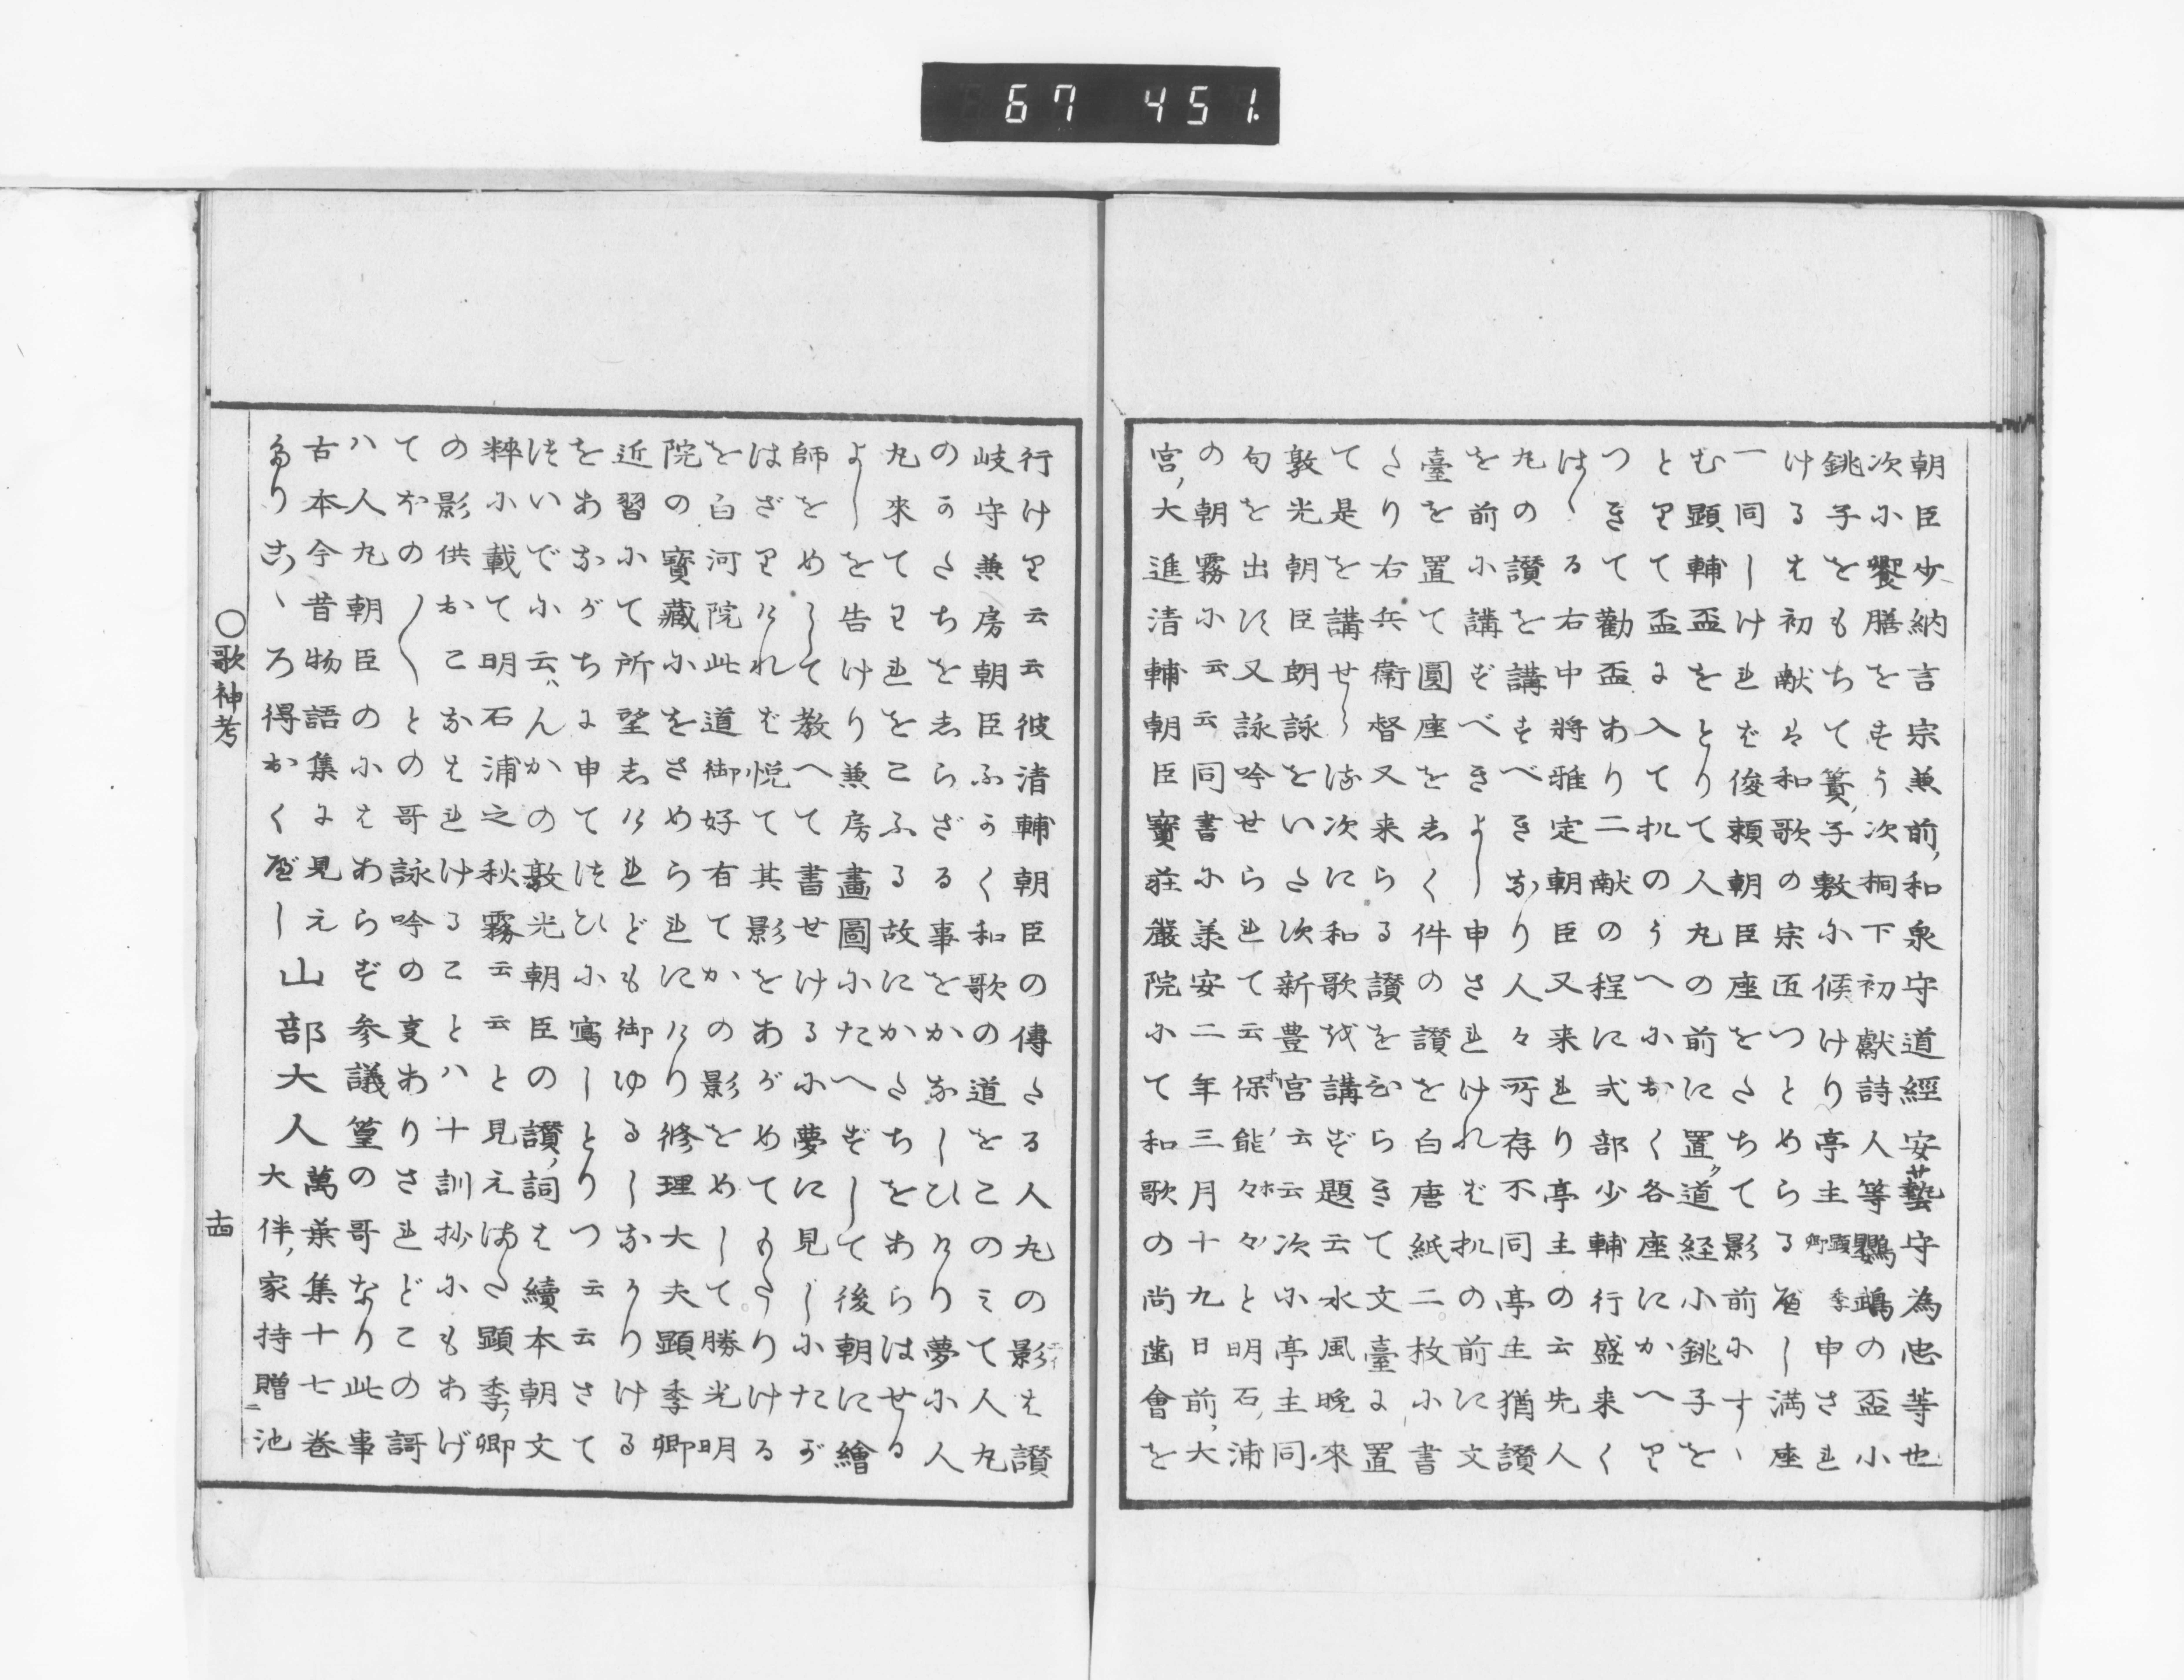 67 451.
朝臣少納言宗兼前和泉守道經安藝守為忠等也
次小饗膳をすう次桐下初獻詩人等鸚鵡の盃小
銚子をもちて簀子敷小候けり亭主顕季卿申され
けるは初献は和歌の宗匠つとめらるべし満座
一同しければ俊頼朝臣座をたちて影前小すゝ
む顕輔盃をとりて人丸の前に置道経小銚子を
とりて盃に入て机のうへ小おく各座にかへり
つきて勸盃あり二献の程に式部少輔行盛来く
はゝる右中將雅定朝臣又来れり亭主の云先人
丸の讃を講ずべきなり人々所存不同亭主猶讃
を前小講ずべきよし申されければ机の前に文
臺を置て圓座をしく件の讃を白唐紙二枚小書
たり右兵衛督又来らる讃をひらきて文臺に置
て是を講せしむ次に和歌を講ず題云水風晩來
敦光朝臣朗詠をいたす次新豊宮云云次小亭主同
句を出す又詠吟せられて云保能々々と明石浦
の朝霧小云云同書小羕安二年三月十九日前大
宮大進清輔朝臣寶莊嚴院小て和歌の尚歯會を
行けり云云彼清輔朝臣の傳たる人丸の影は讃
岐守兼房朝臣ふかく和歌の道をこのミて人丸
のかたちをしらざる事をかなしひけり夢小人
丸來てわれをこふる故にかたちをあらはせる
よしを告けり兼房畫圖小たへずして後朝に繪
師をめして教へて書せけるに夢に見し小たが
はざりければ悦て其影をあがめてもたりける
を白河院此道御好有てかの影をめして勝光明
院の寶藏小をさめられにけり修理大夫顕季卿
近習小て所望しけれども御ゆるしなかりける
をあながちに申てつひ小寫しとりつ云云さて
ついで小云はんかの敦光朝臣の讃詞は續本朝文
粹小載て明石浦之秋霧云云と見えまた顕季卿
の影供おこなはれけることハ十訓抄小もあげ
てほのゝゝとの哥詠吟の支ありされどこの謌
ハ人丸朝臣の小はあらず参議篁の哥なり此事
古本今昔物語集に見え山部大人萬葉集十七巻
なりこゝろ得おくべし大伴家持贈池
○歌神考
十四